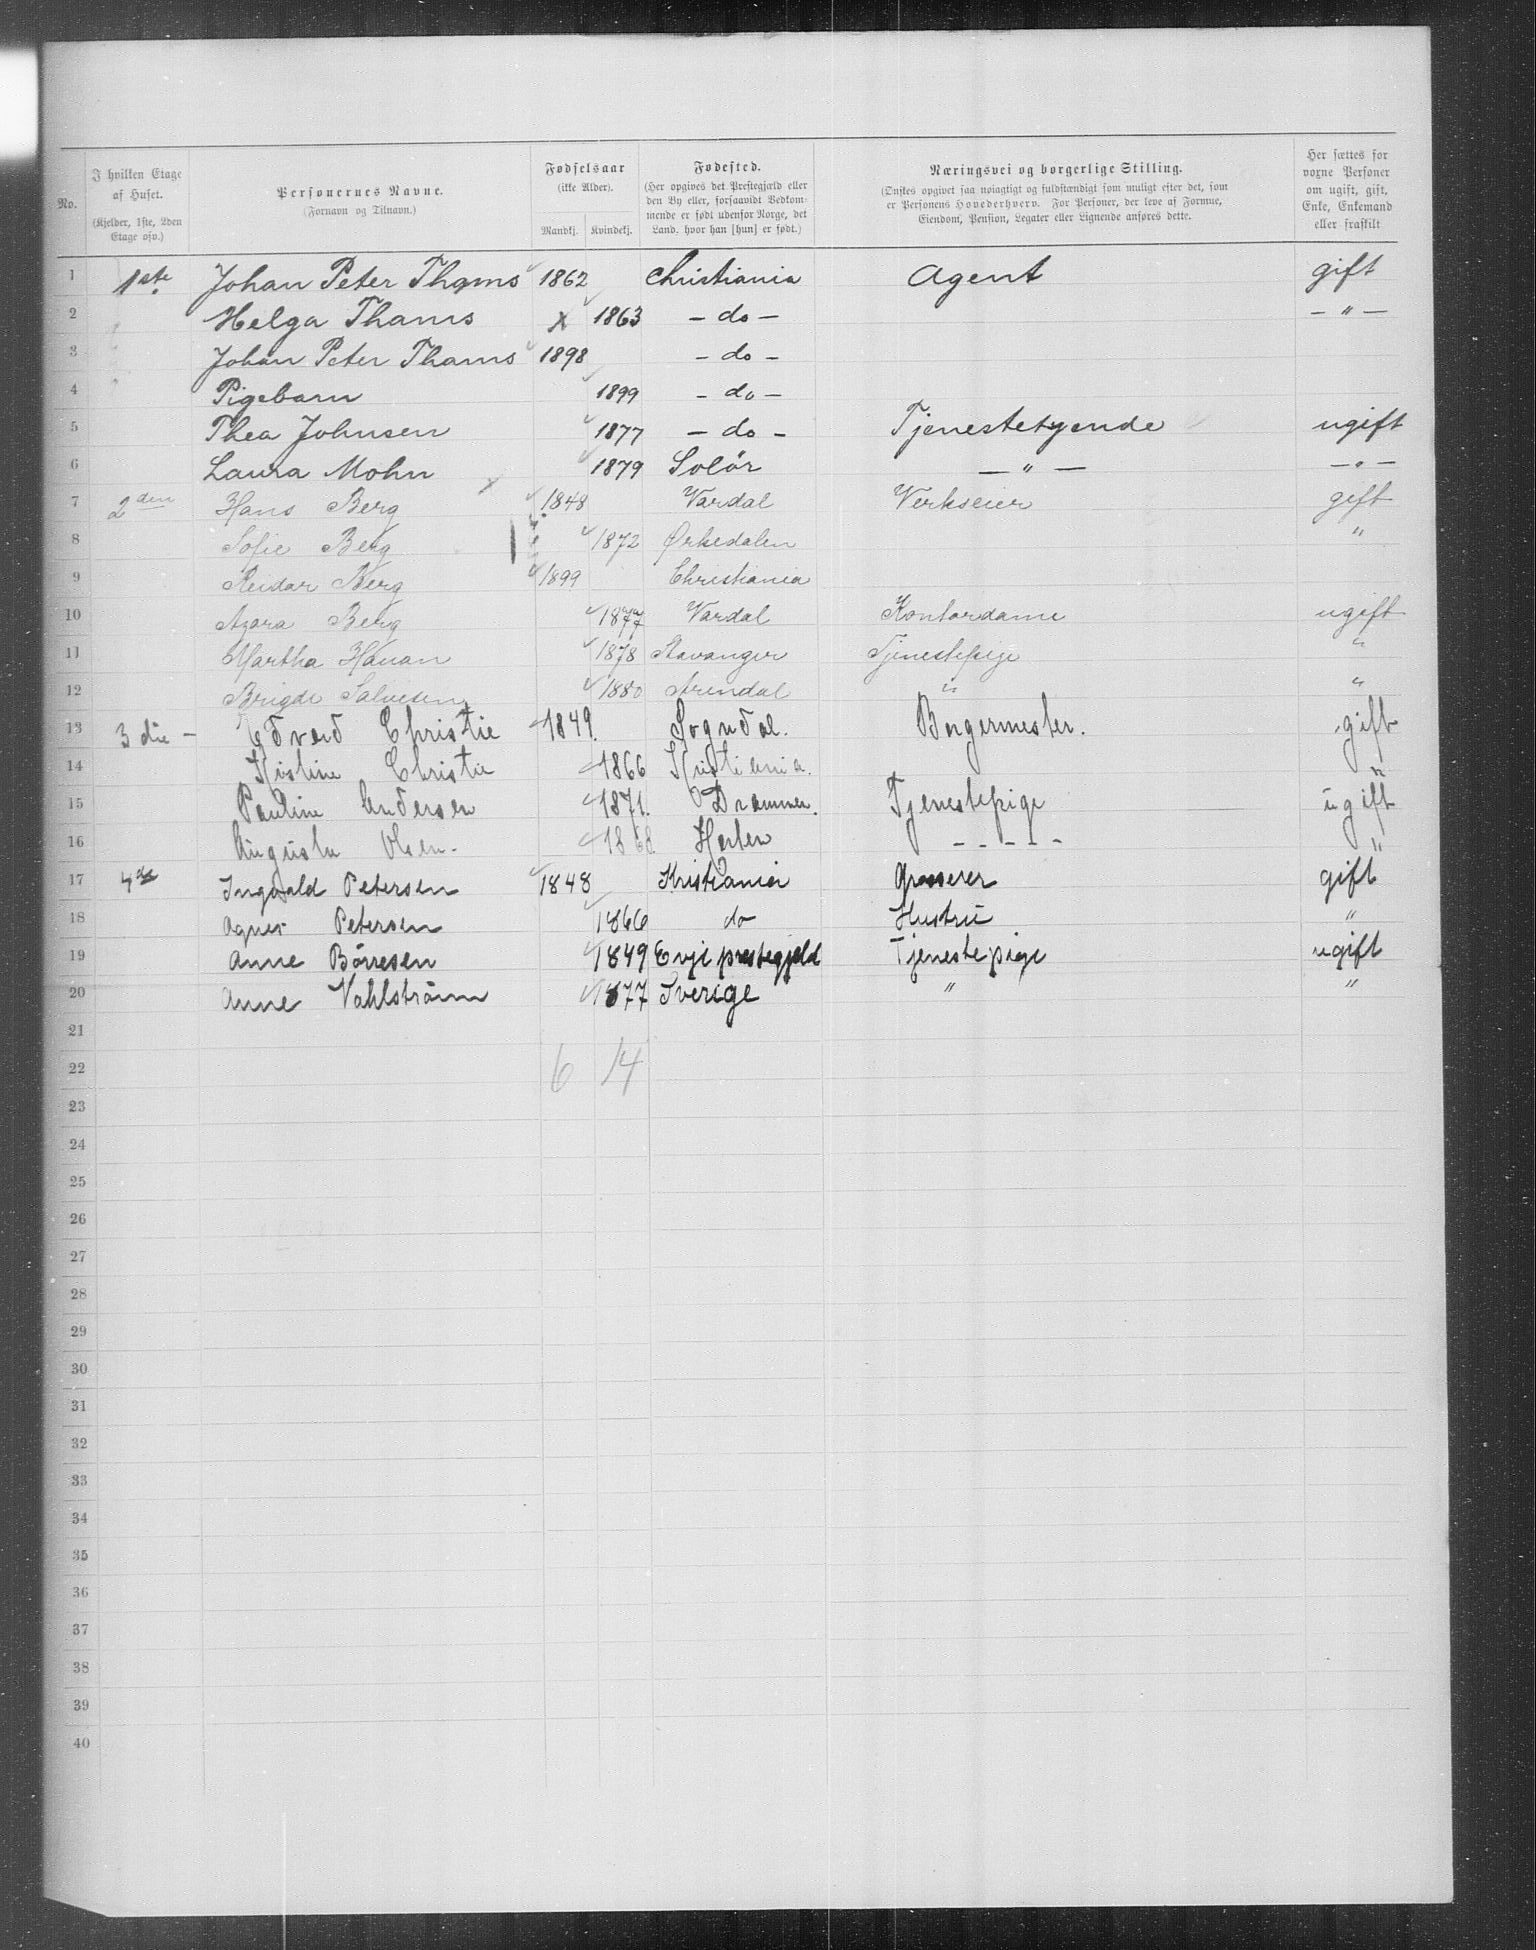 No.
I hvilken Etage af Huset.
(Kjelder, 1ste, 2den Etage osv.)
Personernes Navne.
(Fornavn og Tilnavn.)
Fødselsaar
(ikke Alder).
Mandkj. Kvindekj.
Fødested.
(Her opgives det Prestegjæld eller
den By eller, forsaavidt Vedkom-
mende er født udenfor Norge, det
Land, hvor han [hun] er født.)
Næringsvei og borgerlige Stilling.
(Ønskes opgivet saa nøiagtigt og fuldstændigt som muligt efter det, som
er Personens Hovederhverv. For Personer, der leve af Formue,
Eiendom, Pension, Legater eller Lignende anføres dette.
Her sættes for
voxne Personer
om ugift, gift,
Enke, Enkemand
eller fraskilt
1 1ste Johan Peter Thams 1862 Christiania Agent gift
2 Helga Thams x 1863 - do - - " -
3 Johan Peter Thams 1898 - do -
4 Pigebarn 1899 - do -
5 Thea Johnsen 1877 - do - Tjenestetyende ugift
6 Laura Mohn 1879 Solör - " - - " -
7 2den Hans Berg 1848 Vardal Verkseier gift
8 Sofie Berg 1872 Ørkedalen "
9 Reidar Berg 1899 Christiania
10 Azora Berg 1877 Vardal Kontordame ugift
11 Martha Hauan 1878 Stavanger Tjenestepige "
12 Brigde Salvesen 1880 Arendal " "
13 3die - Edvard Christie 1849. Sogndal. Borgermester. gift
14 Kistine Christie 1866 Kristiania. "
15 Pauline Andersen 1871. Drammen. Tjenestepige ugift
16 Augusta Olsen. 1868. Horten - - - - - "
17 4de Ingvald Petersen 1848 Kristiania Grosserer gift
18 Agnes Petersen 1866 do Hustru "
19 Anne Börresen 1849 Evje prestegjeld Tjenestepige ugift
20 Anne Vahlström 1877 Sverige " "
21
22 6 14
23
24
25
26
27
28
29
30
31
32
33
34
35
36
37
38
39
40